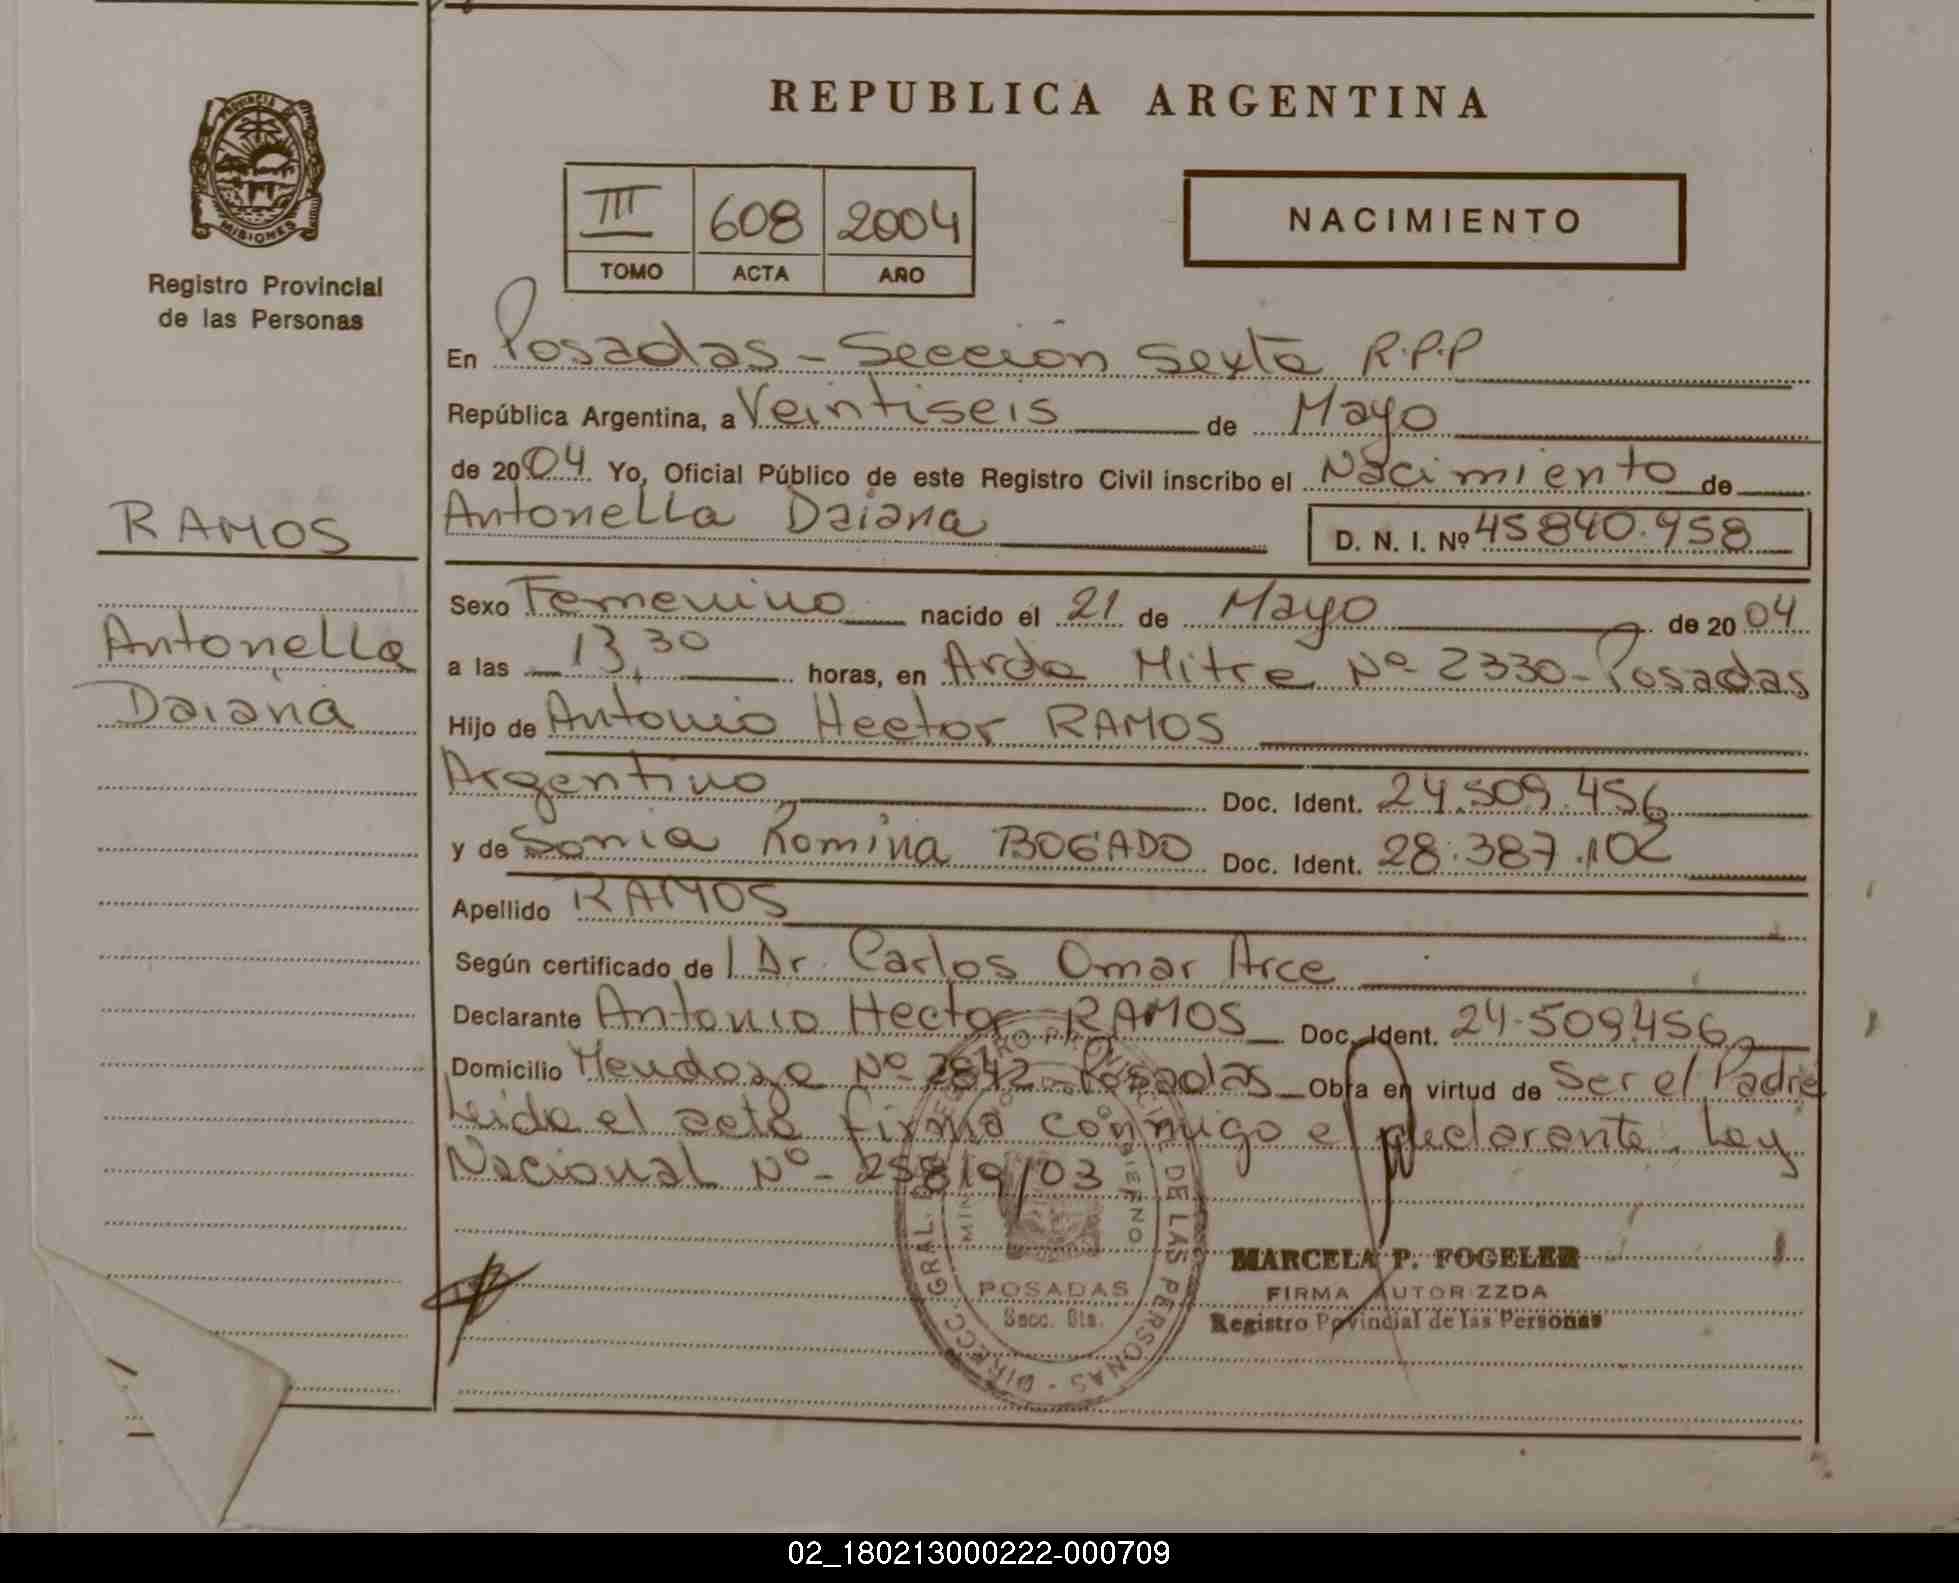 REPUBLICA ARGENTINA
PROVINCIA
MISIONES
Registro Provincial
de las Personas
III 608 2004
TOMO ACTA AÑO
NACIMIENTO
En Posadas - Sección Sexta R.P.P
República Argentina, a Veintiseis de Mayo
de 2004 Yo, Oficial Público de este Registro Civil inscribo el Nacimiento de
RAMOS
Antonella Daiana
D. N. I. Nº 45840.958
Sexo Femenino nacido el 21 de Mayo de 2004
Antonella
Daiana
a las 13,30 horas, en Avda Mitre Nº 2330 - Posadas
Hijo de Antonio Hector RAMOS
Argentino Doc. Ident. 24.509.456
y de Sonia Romina BOGADO Doc. Ident. 28.387.102
Apellido RAMOS
Según certificado de l Dr. Carlos Omar Arce
Declarante Antonio Hector RAMOS Doc. Ident. 24.509.456
Domicilio Mendoza Nº 2842 - Posadas Obra en virtud de Ser el Padre
Leida el acta firma conmigo el declarante. Ley
Nacional Nº - 25819/03
DE LAS PERSONAS
POSADAS
Secc. 6ta.
MARCELA P. FOGELER
FIRMA AUTORIZZDA
Registro Provincial de las Personas
02_180213000222-000709